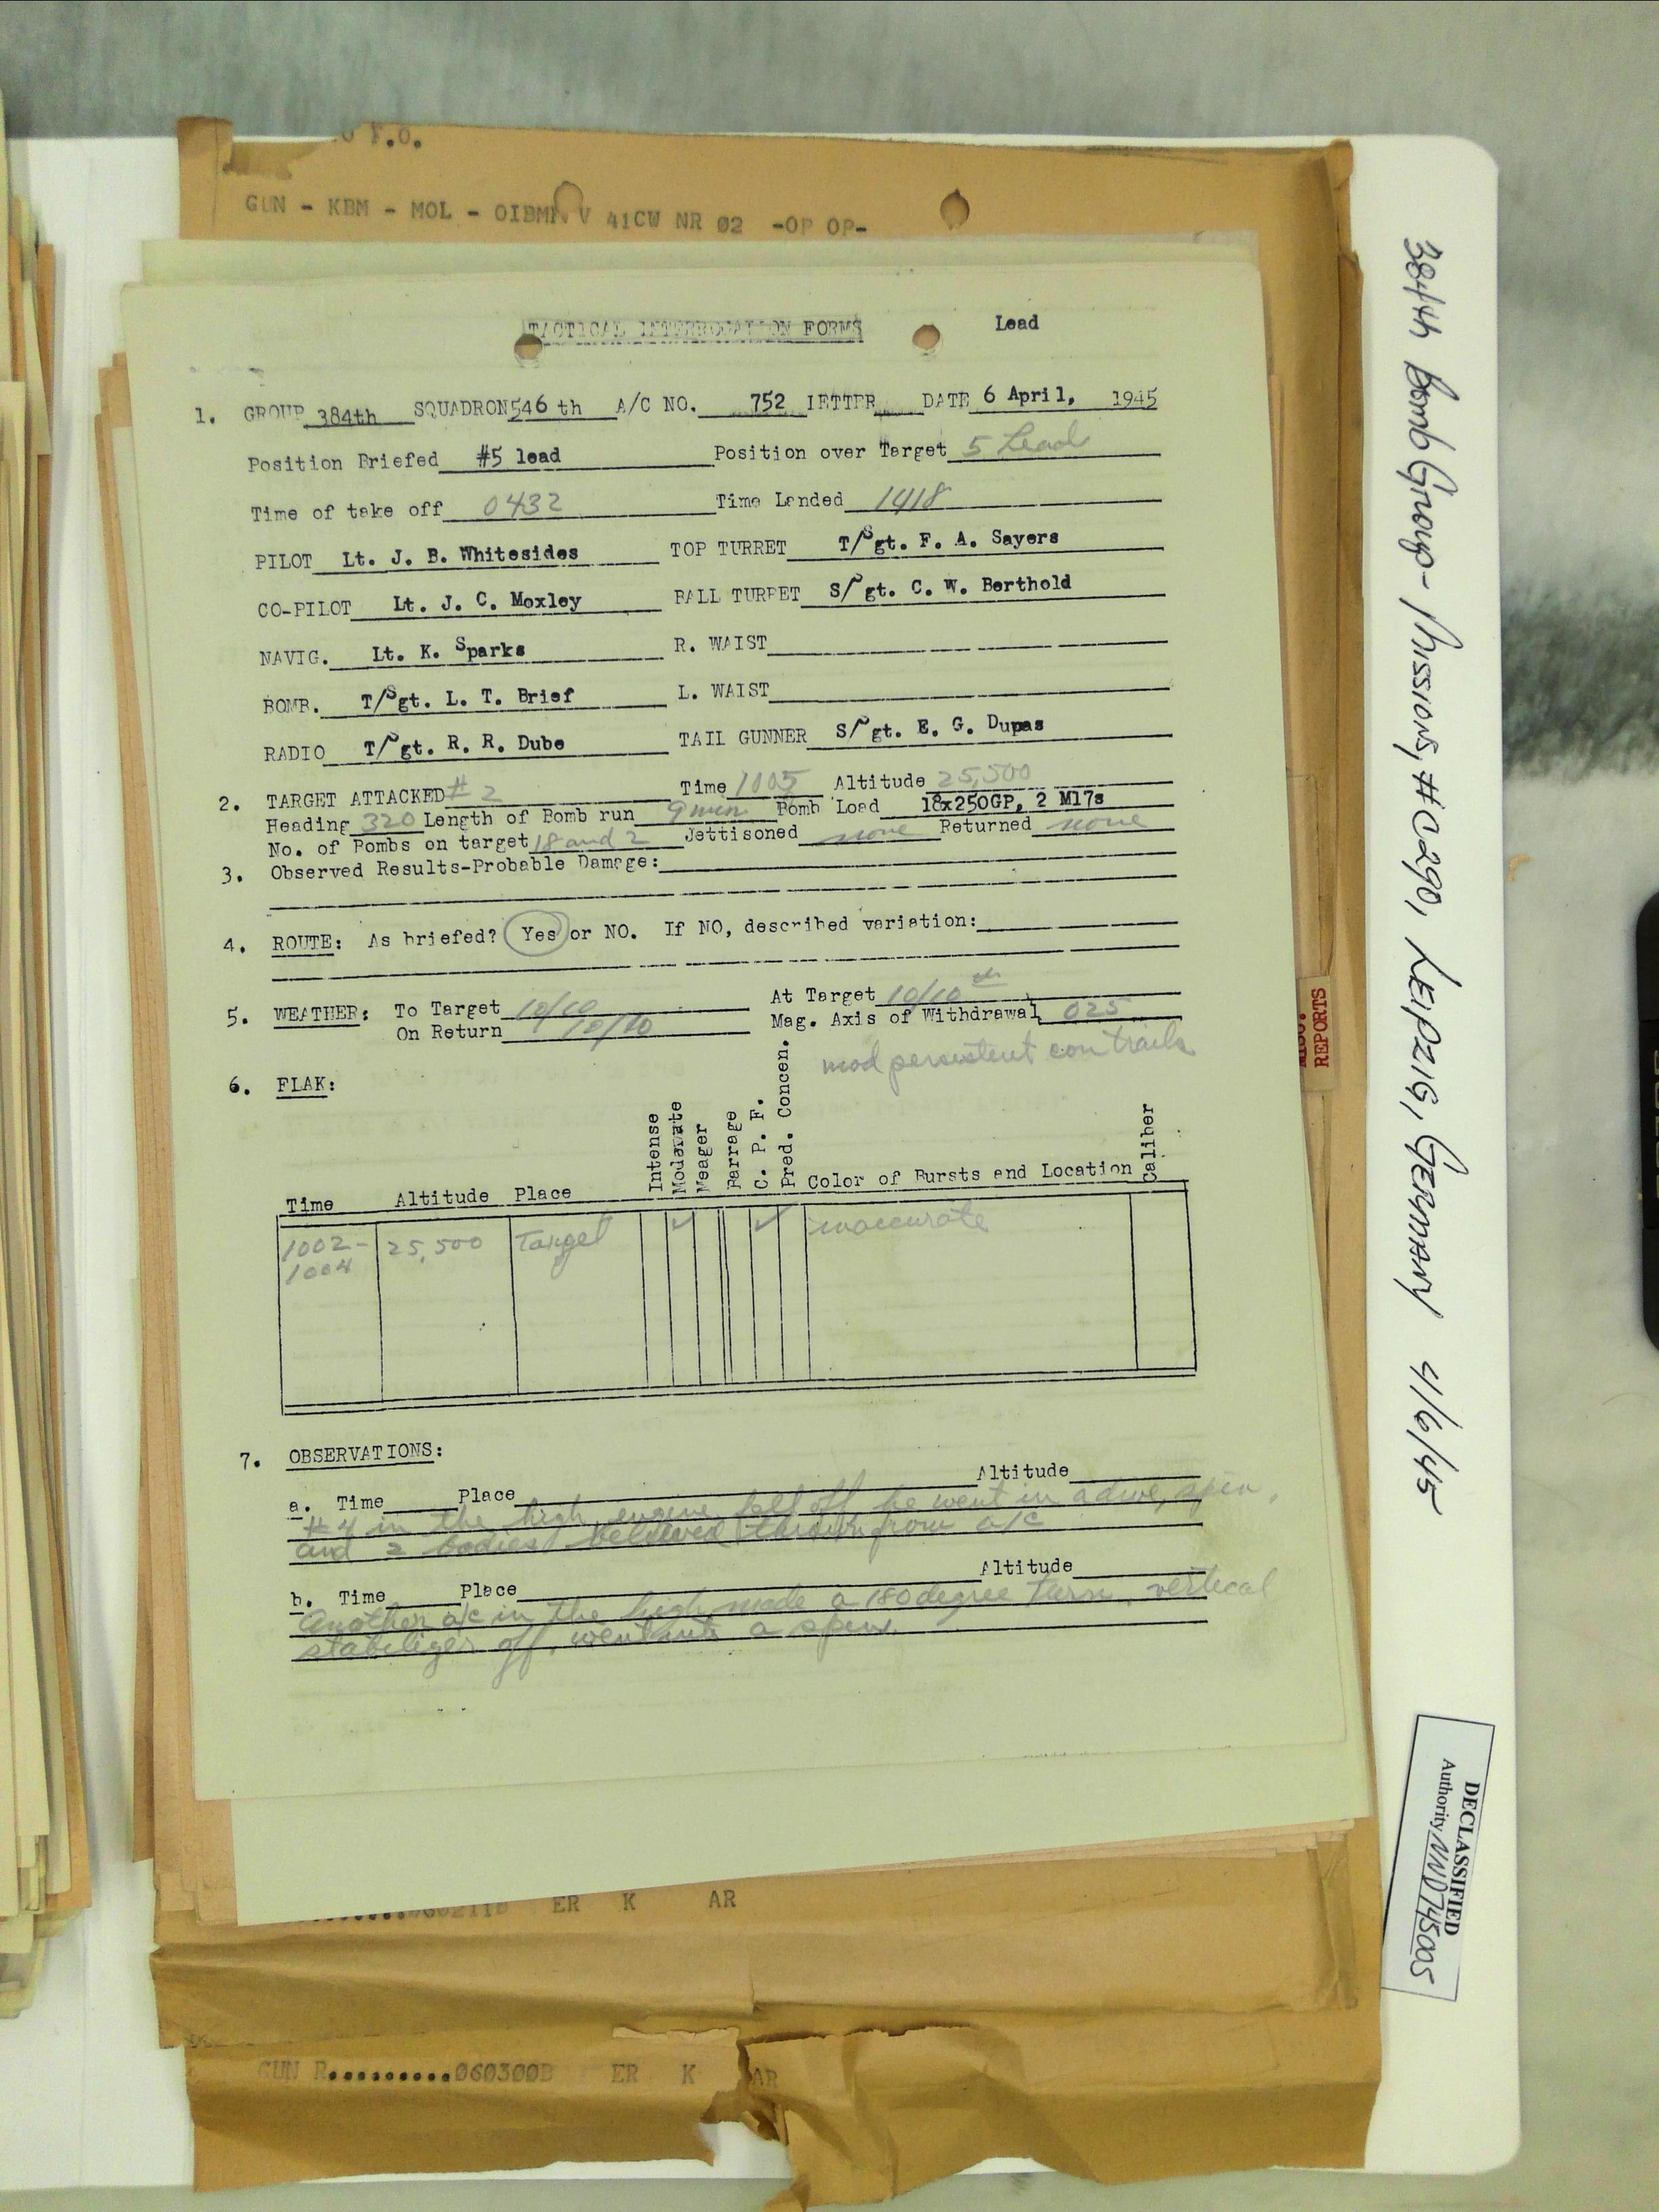 F.O.
GUN - KBM - MOL - OIBMN V 41CW NR 02 -OP OP-
TACTICAL INTERROGATION FORMS Lead
1. GROUP 384th SQUADRON 546 th A/C NO. 752 LETTER DATE 6 April, 1945
Position Briefed #5 lead Position over Target 5 Lead
Time of take off 0432 Time Landed 1418
PILOT Lt. J. B. Whitesides TOP TURRET T/Sgt. F. A. Sayers
CO-PILOT Lt. J. C. Moxley BALL TURRET S/Sgt. C. W. Berthold
NAVIG. Lt. K. Sparks R. WAIST
BOMB. T/Sgt. L. T. Brief L. WAIST
RADIO T/Sgt. R. R. Dube TAIL GUNNER S/Sgt. E. G. Dupas
2. TARGET ATTACKED #2 Time 1005 Altitude 25,500
Heading 320 Length of Bomb run 9 min Bomb Load 18x250GP, 2 M17s
No. of Bombs on target 18 and 2 Jettisoned none Returned none
3. Observed Results-Probable Damage:
4. ROUTE: As briefed? Yes or NO. If NO, described variation:
5. WEATHER: To Target 10/10 At Target 10/10
On Return 10/10 Mag. Axis of Withdrawal 025
mod persistent con trails
6. FLAK:
Time Altitude Place Intense Moderate Meager Barrage C. P. F. Pred. Concen. Color of Bursts and Location Caliber
1002- 25,500 Target ✓ ✓ inaccurate
1004
7. OBSERVATIONS:
a. Time Place Altitude
#4 in the high engine fell off he went in a dive, spin,
and 2 bodies believed thrown from a/c
b. Time Place Altitude
Another a/c in the high made a 180 degree turn, vertical
stabilizer off, went into a spin.
060211B ER K AR
GUN R..........060300B ER K AR
MISC. REPORTS
384th Bomb Group- Missions, #0290, LEIPZIG, GERMANY 4/6/45
DECLASSIFIED
Authority NND745005